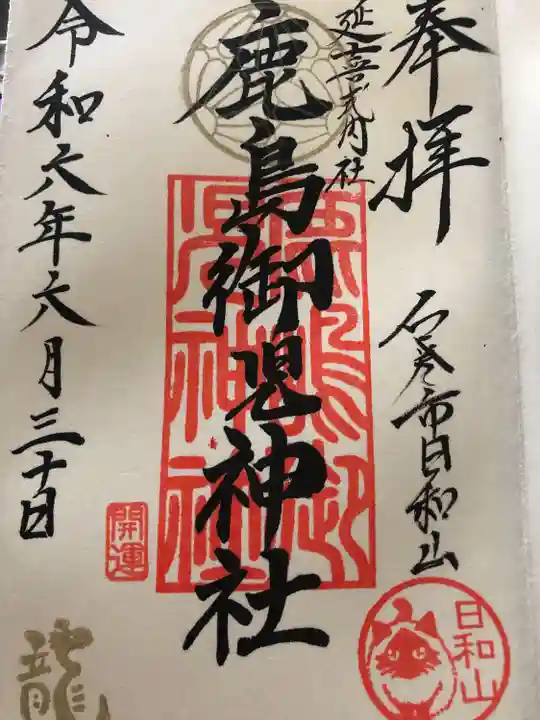 奉拝
石巻市日和山
日和山
延喜式内社
鹿島御児神社
鹿嶋御
児神社
開運
令和六年六月三十日
龍